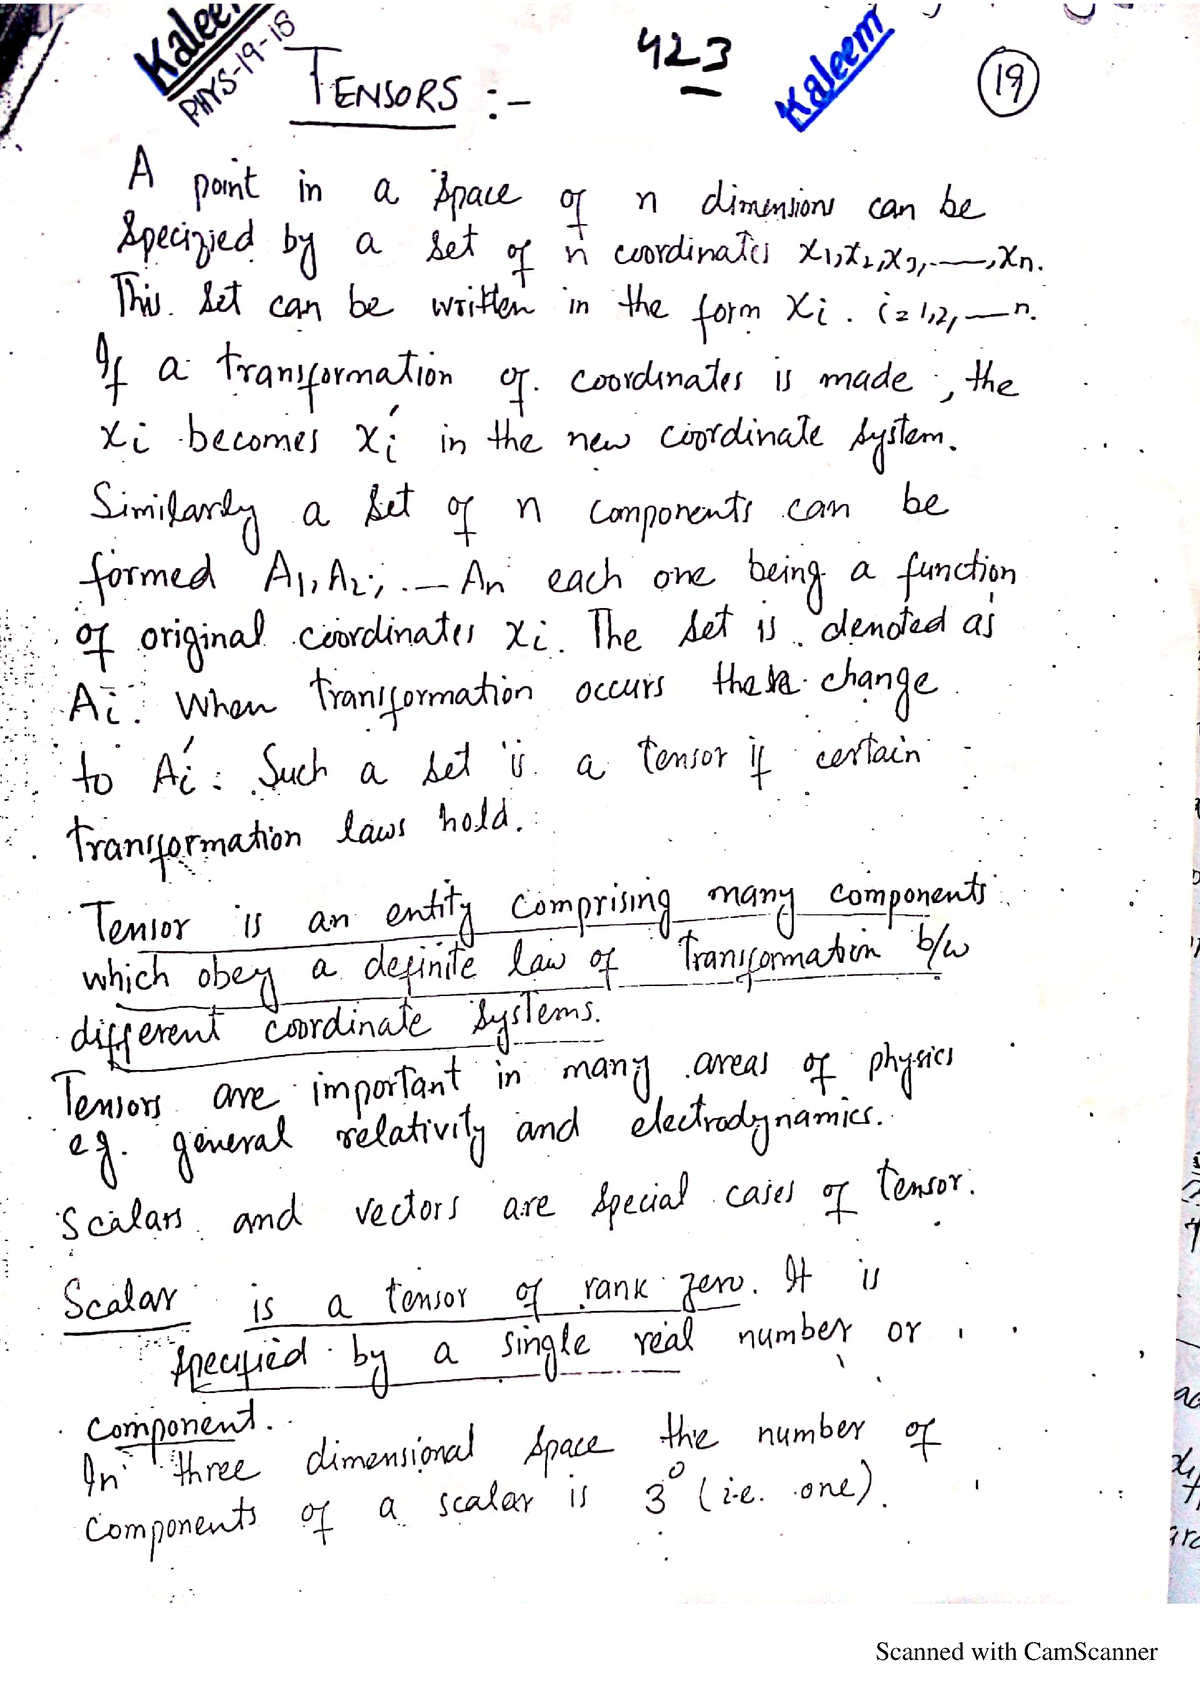 Kaleem
PHYS-19-18
423
Kaleem
19
TENSORS :-
A point in a space of n dimensions can be
specified by a set of n coordinates x1,x2,x3,.—,xn.
This set can be written in the form xi. i=1,2,—n.
If a transformation of coordinates is made, the
xi becomes xi' in the new coordinate system.
Similarly a set of n components can be
formed A1,A2,.— An each one being a function
of original coordinates xi. The set is denoted as
Ai. When transformation occurs these change
to Ai'. Such a set is a tensor if certain
transformation laws hold.
Tensor is an entity comprising many components
which obey a definite law of transformation b/w
different coordinate systems.
Tensors are important in many areas of physics
eg. general relativity and electrodynamics.
Scalars and vectors are special cases of tensor.
Scalar is a tensor of rank zero. It is
specified by a single real number or
component.
In three dimensional space the number of
components of a scalar is 3⁰ (i.e. one).
Scanned with CamScanner